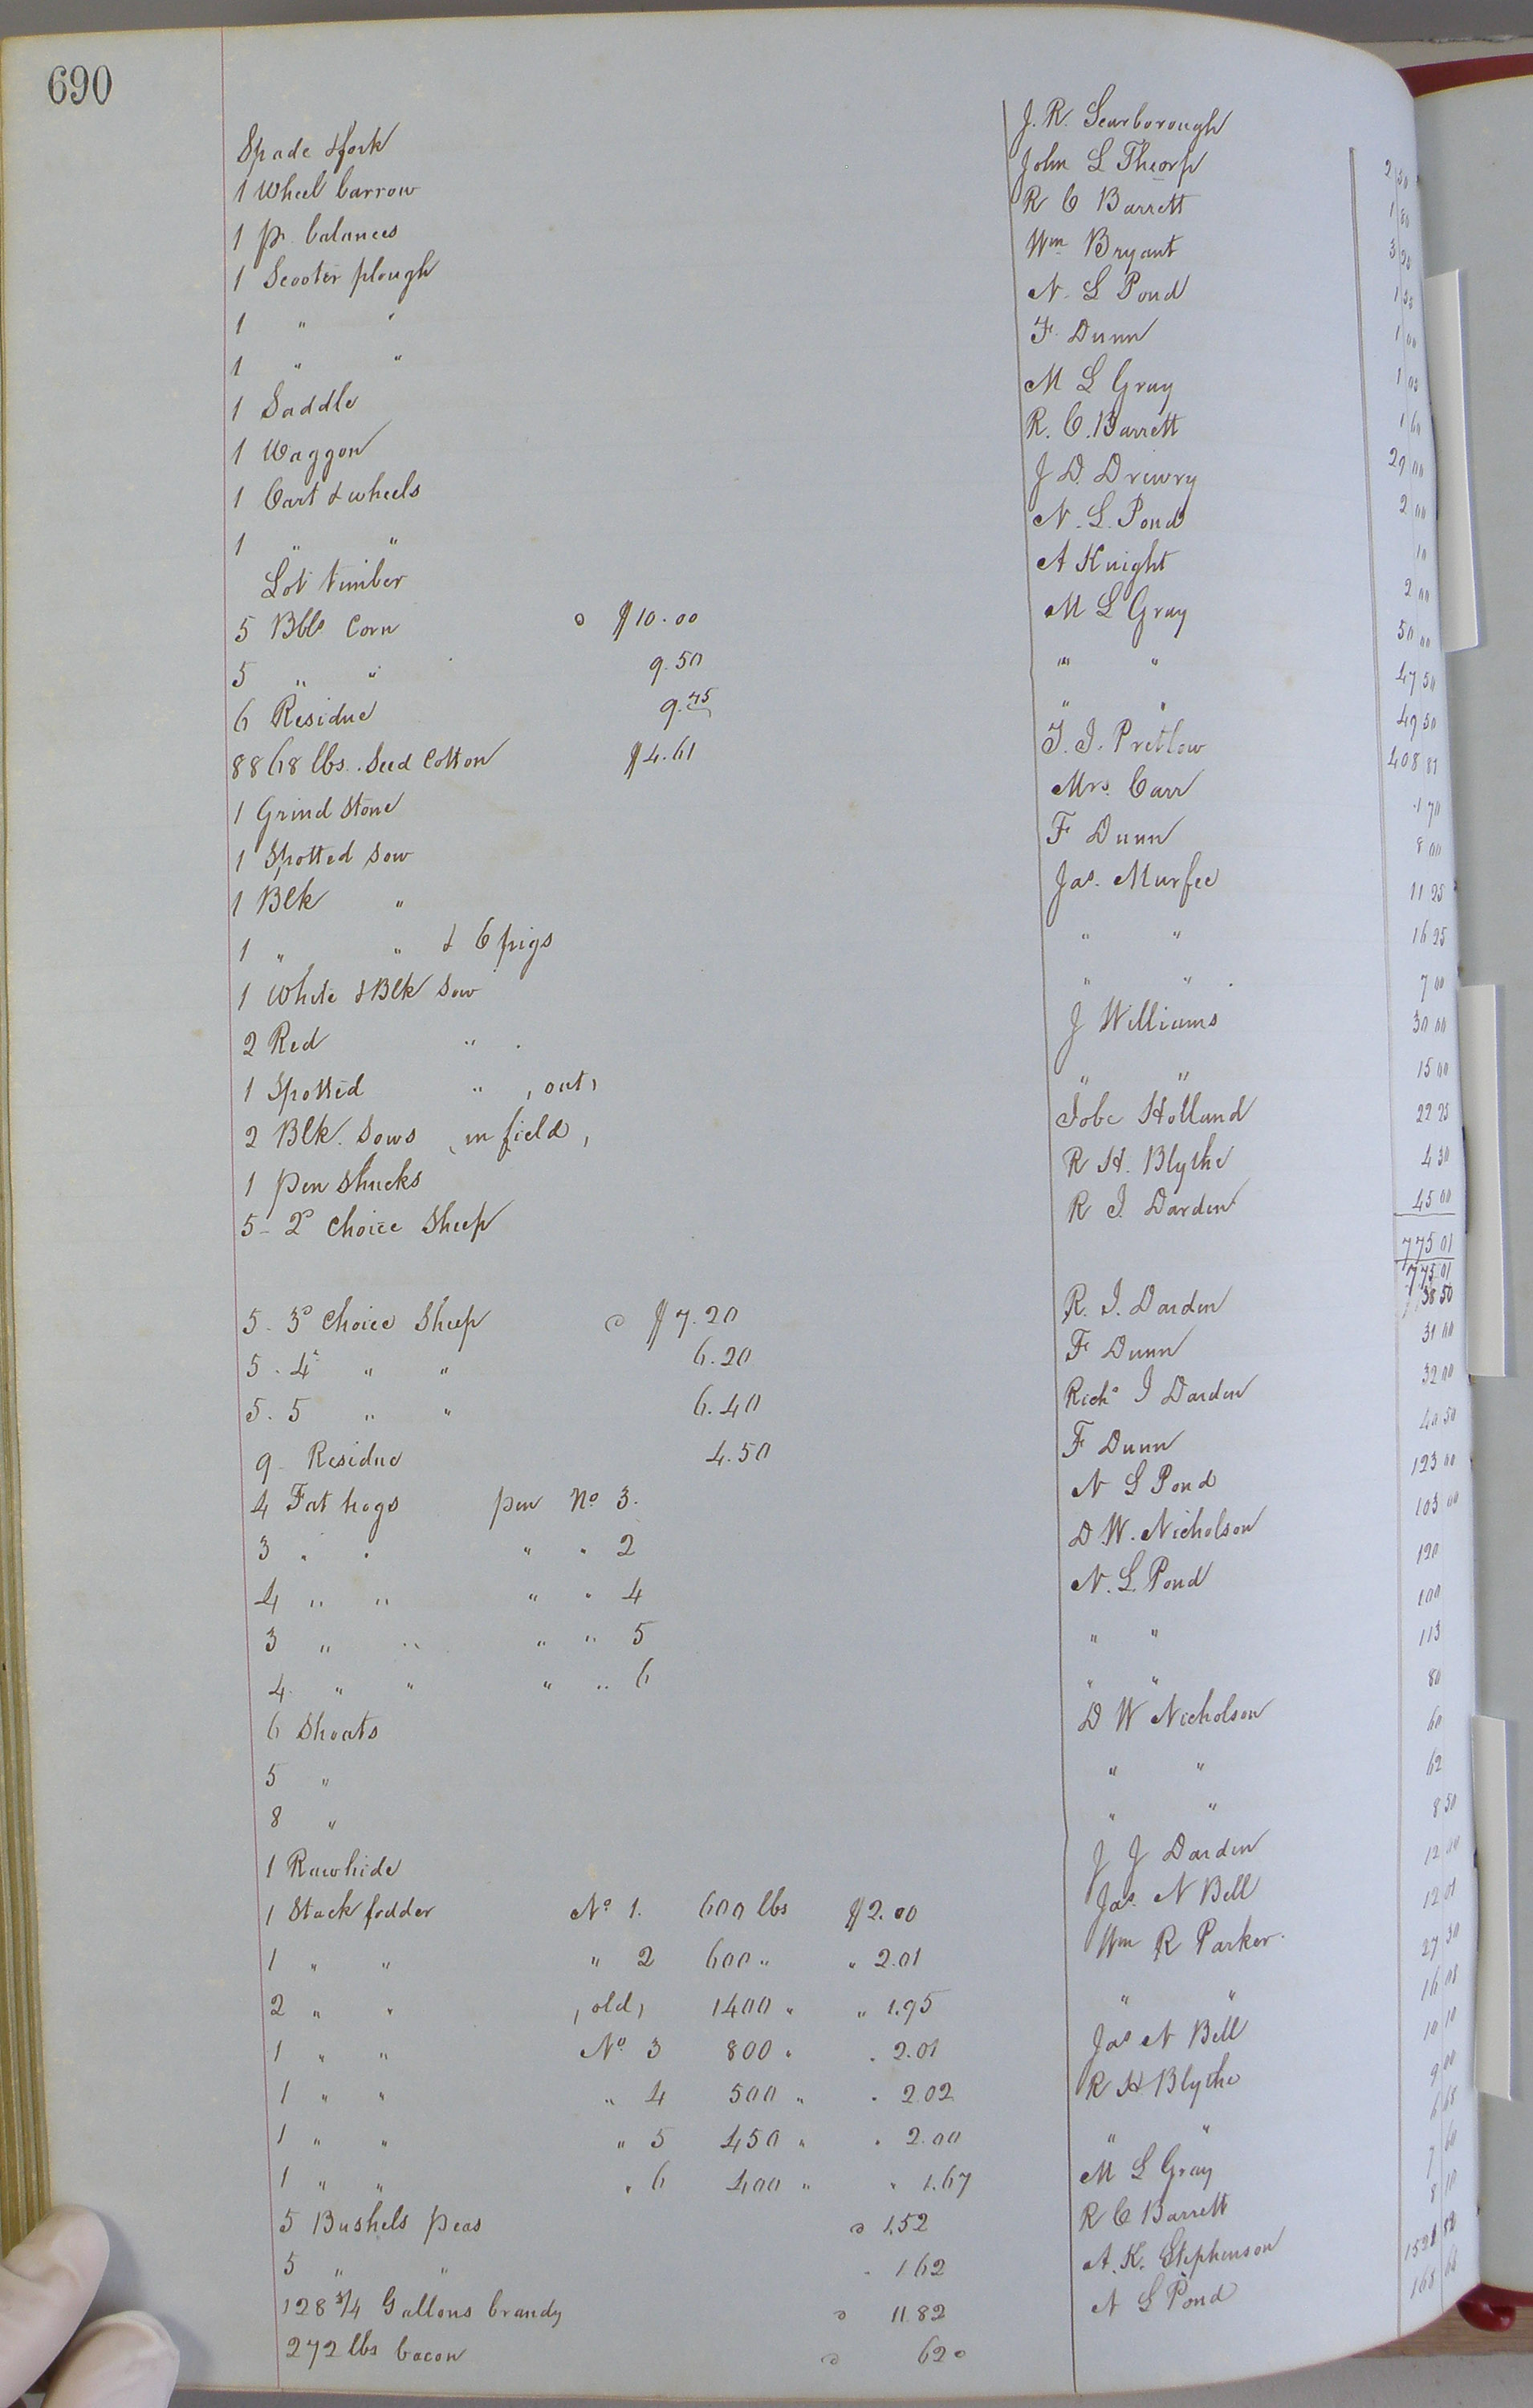 690
Spade & fork J. R. Scarborough 2 50
1 Wheel barrow John L Thorp 1 80
1 pr. balances R C Barrett 3 20
1 Scooter plough Wm Bryant 1 35
1 " " N. L Pond 1 00
1 " " F. Dunn 1 05
1 Saddle M L Gray 1 60
1 Waggon R. C. Barrett 29 00
1 Cart & wheels J D Drewry 2 00
1 " " N. L. Pond 10
Lot timber A Knight 2 00
5 Bbls Corn @ $10.00 M L Gray 50 00
5 " " 9.50 " " 47 50
6 Residue 9.45 " " 49 50
8868 lbs. Seed Cotton $4.61 T. J. Pretlow 408 81
1 Grind Stone Mrs. Carr 1 70
1 Spotted Sow F Dunn 8 00
1 Blk " Jas. Murfee 11 25
1 " " & 6 pigs " " 16 25
1 White & Blk Sow " " 7 00
2 Red " J Williams 30 00
1 Spotted " , out, " " 15 00
2 Blk. Sows , in field, Jobe Holland 22 25
1 pen Shucks R H. Blythe 4 30
5 - 2d Choice Sheep R J. Darden 45 00
775 01
775 01
5 - 3d Choice Sheep @ $7.20 R. J. Darden 38 50
5 - 4th " " 6.20 F Dunn 31 00
5 - 5 " " 6.40 Richd J Darden 32 00
9 - Residue 4.50 F Dunn 40 50
4 Fat hogs pen No 3. N L Pond 123 00
3 " " " " 2 D. W. Nicholson 103 00
4 " " " " 4 N. L. Pond 120
3 " " " " 5 " " 100
4 " " " " 6 " " 113
6 Shoats D W Nicholson 80
5 " " " 60
8 " " " 62
1 Rawhide J J Darden 8 50
1 Stack fodder No 1. 600 lbs $2.00 Jas. N Bell 12 00
1 " " " 2 600 " " 2.01 Wm R Parker 12 01
2 " " , old, 1400 " " 1.95 " " 27 30
1 " " No 3 800 " " 2.01 Jas N Bell 16 08
1 " " " 4 500 " " 2.02 R H Blythe 10 10
1 " " " 5 450 " " 2.00 " " 9 00
1 " " " 6 400 " " 1.67 M L Gray 6 68
5 Bushels peas @ 1.52 R C Barrett 7 60
5 " " " 1 62 A. K. Stephenson 8 10
128 3/4 Gallons brandy @ 11.82 N L Pond 1521 82
272 lbs bacon @ 62 168 68